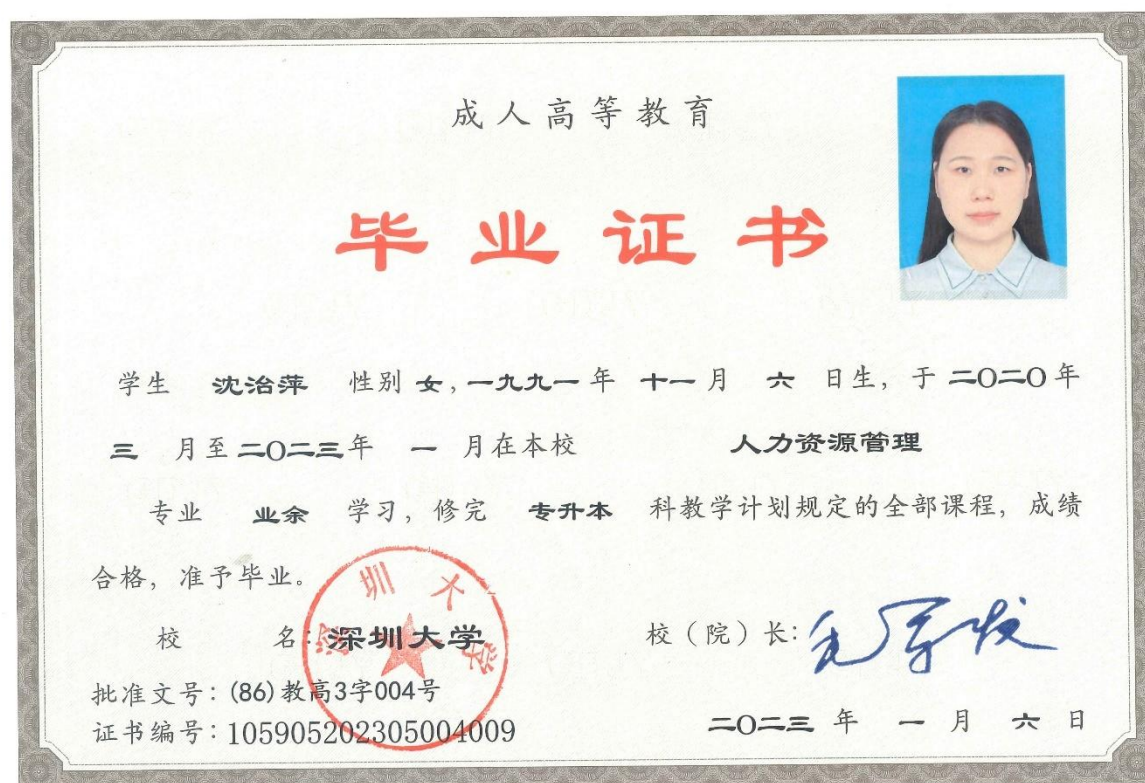 成人高等教育
毕业证书
学生 沈治萍 性别 女,一九九一年 十一月 六 日生,于二〇二〇年
三 月至二〇二三年 一 月在本校 人力资源管理
专业 业余 学习,修完 专升本 科教学计划规定的全部课程,成绩
合格,准予毕业。
深圳大学
校 名:深圳大学 校(院)长:毛军发
批准文号:(86)教高3字004号
证书编号:105905202305004009
二〇二三 年 一 月 六 日